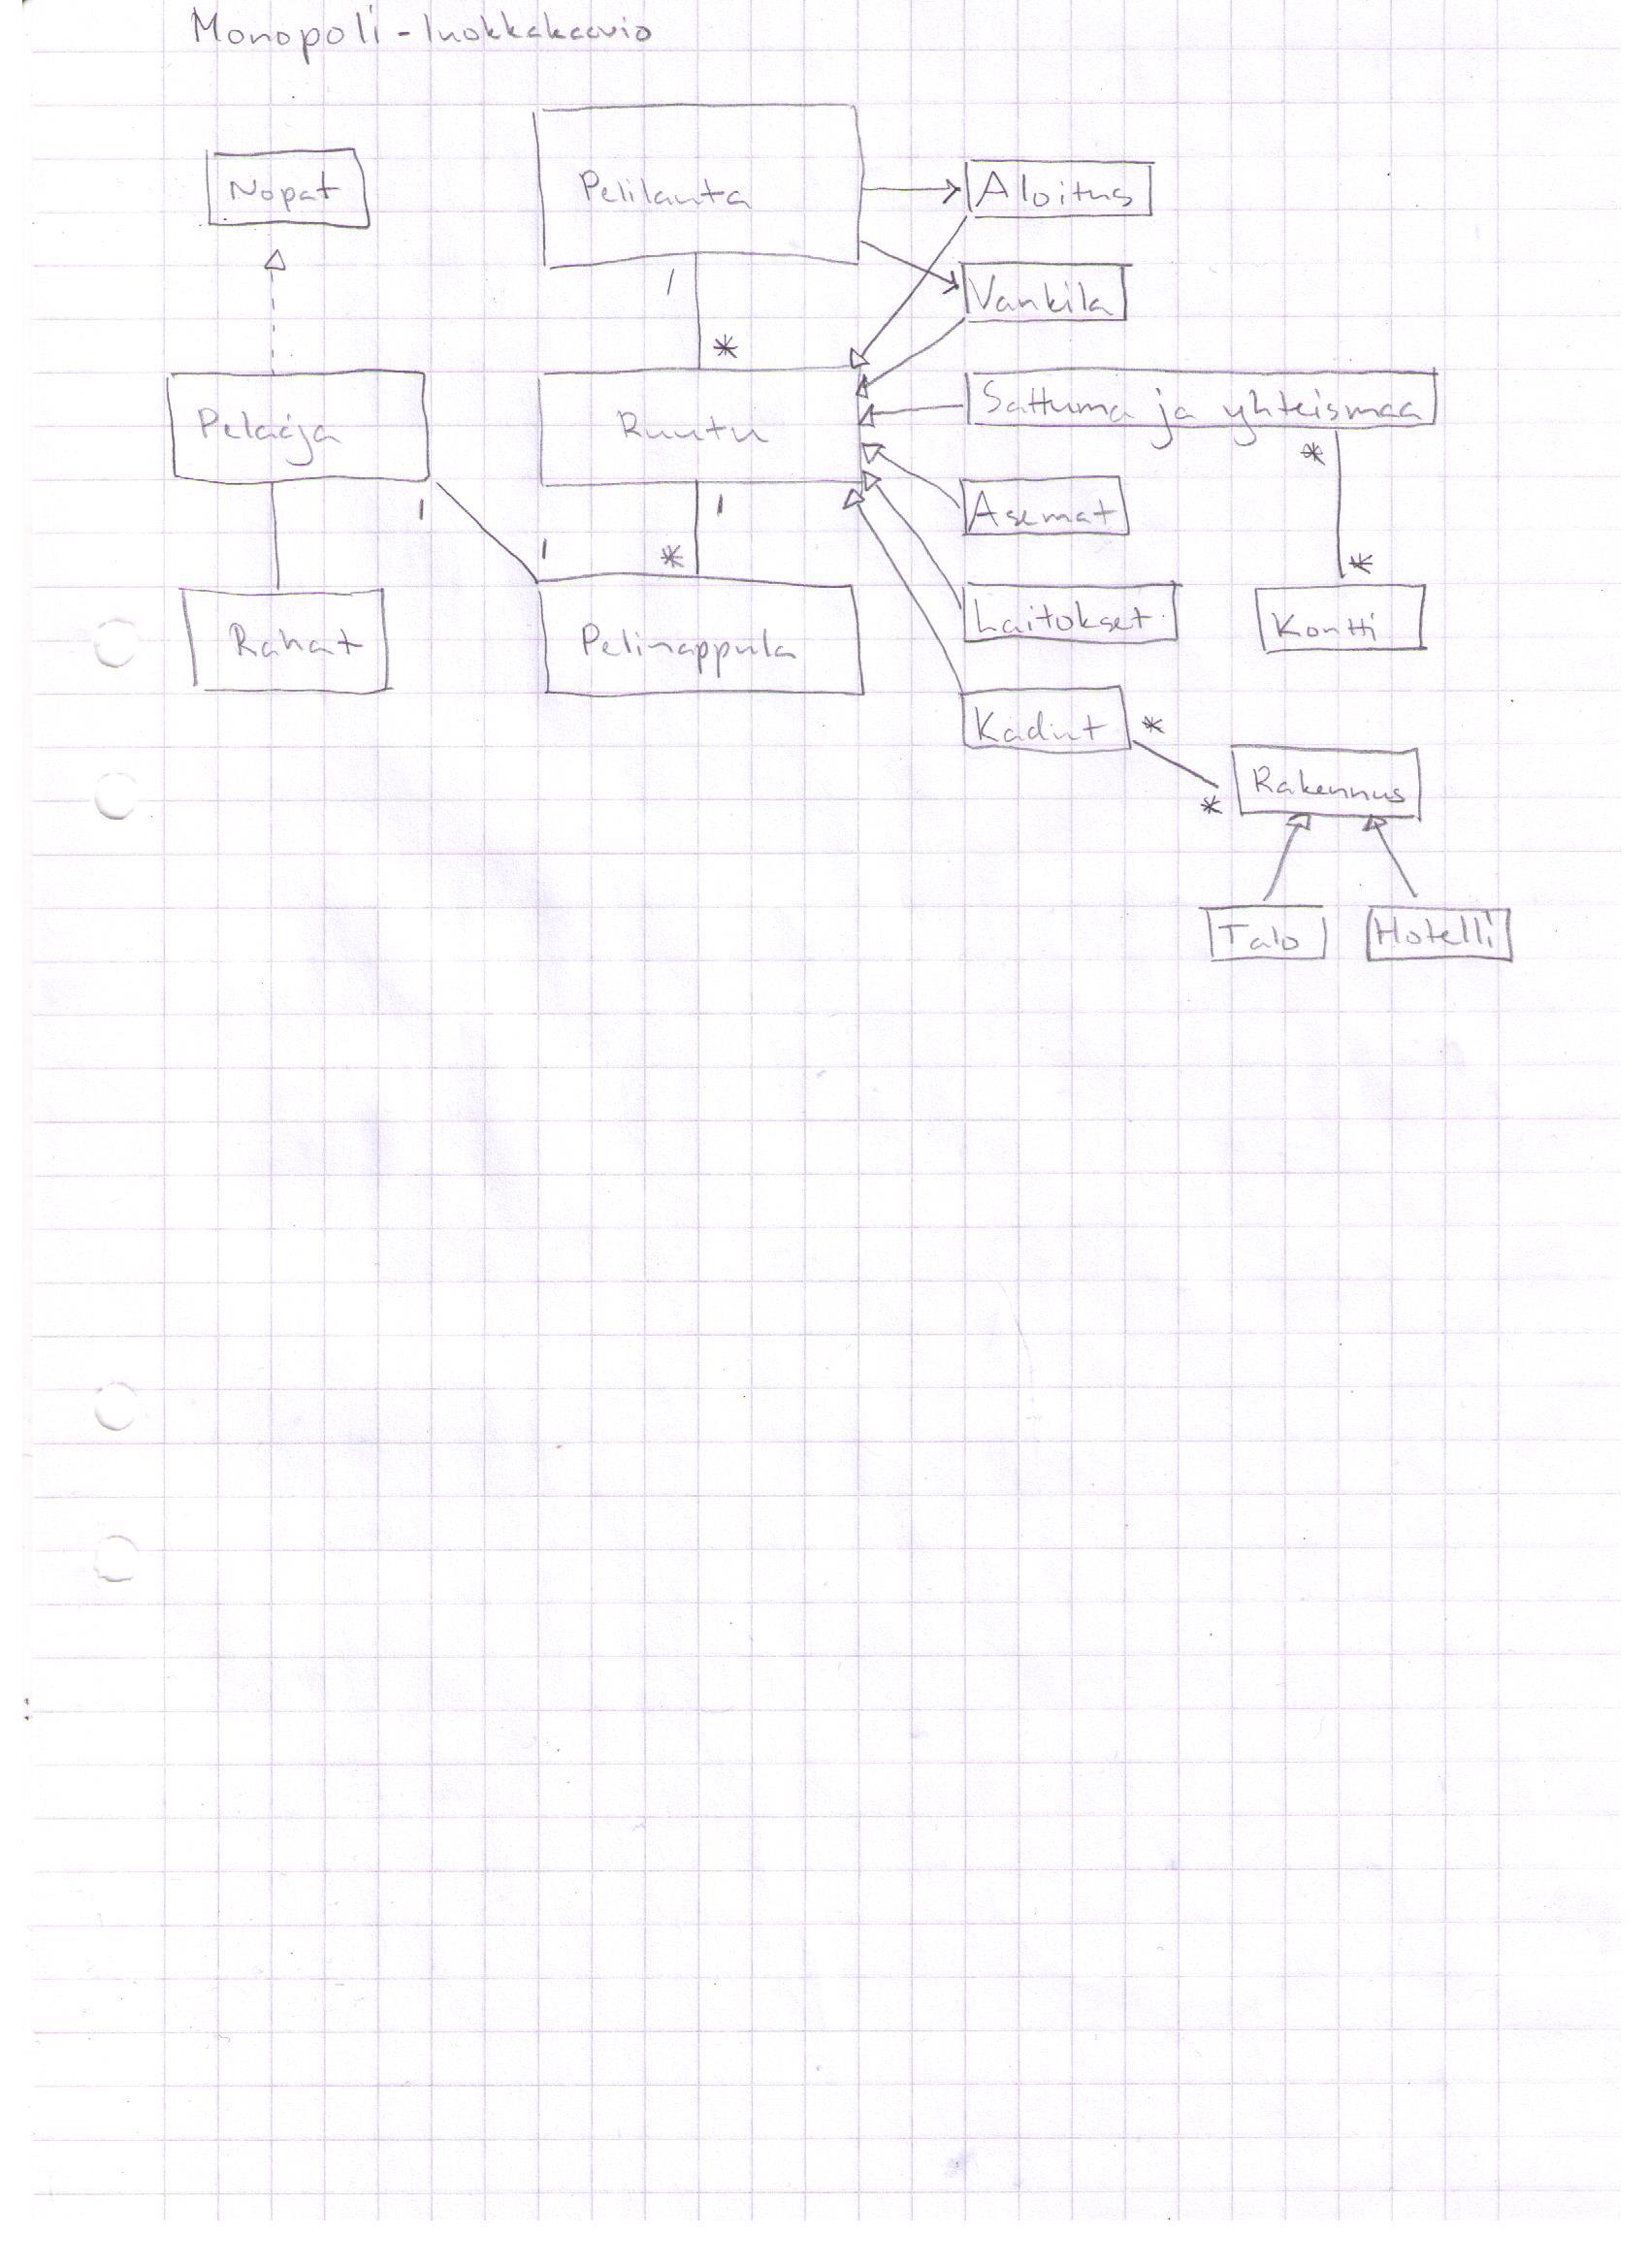 Monopoli - luokkakaavio
Nopat
Pelilauta
Aloitus
1
Vankila
*
Pelaaja
Ruutu
Sattuma ja yhteismaa
*
1
1
Asemat
1
*
*
Rahat
Pelinappula
Laitokset
Kortti
Kadut
*
Rakennus
*
Talo
Hotelli